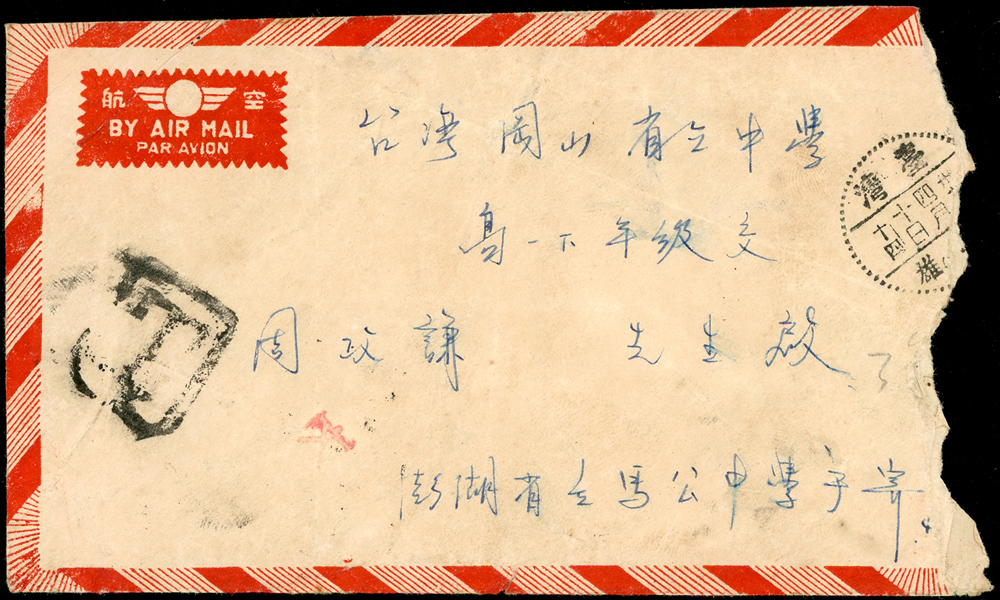 航 空
BY AIR MAIL
PAR AVION
台湾岡山省立中學
高一下年級交
周政謙 先生啟
澎湖省立馬公中學于寄
臺灣
四月
十四日
雄
T